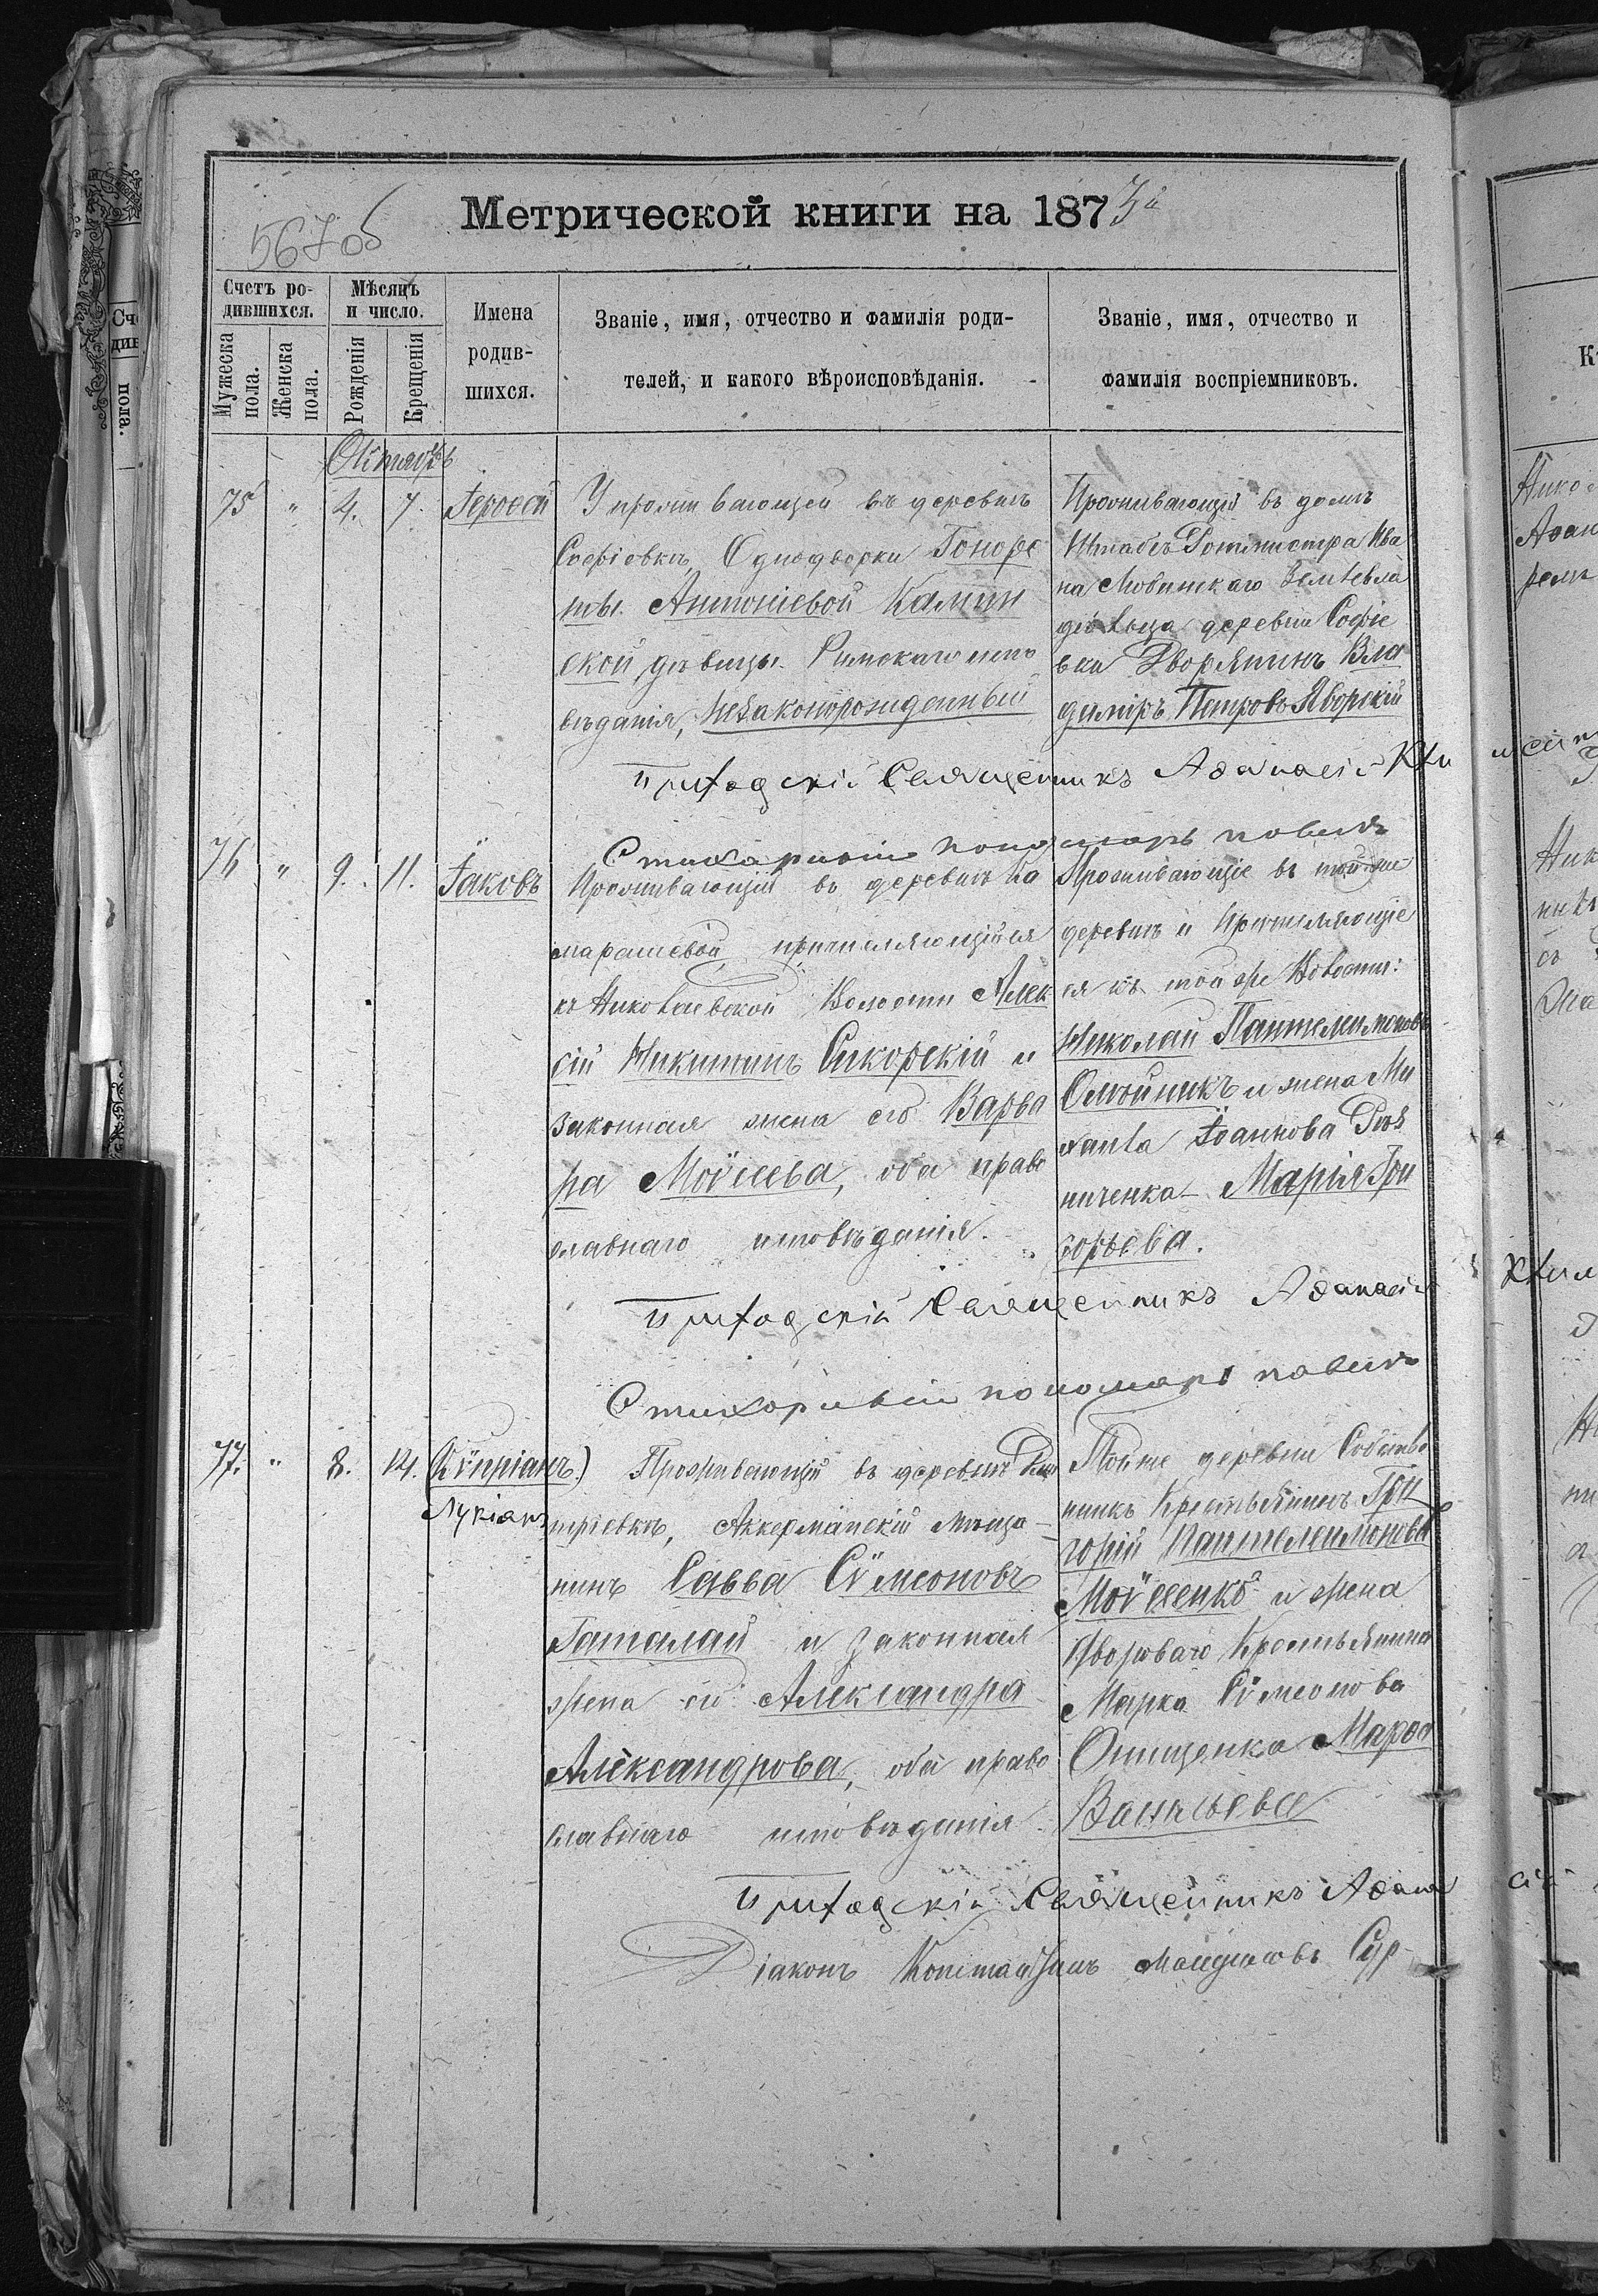 567об
Метрической книги на 1873й
Счетъ ро-
дившихся.
Мужеска
пола.
Женска
пола.
Мѣсяцъ
и число.
Рожденія
Крещенія
Имена
родив-
шихся.
Званіе, имя, отчество и фамилія роди-
телей, и какого вѣроисповѣданія.
Званіе, имя, отчество и
фамилія воспріемниковъ.
Октябрь
75 " 4. 7. Іероѳей
У проживающей въ деревнѣ
Софіевкѣ, Однодворки Гоноре
ты Антоніевой Камин
ской, дѣвицы Римскаго испо
вѣданія, Незаконорожденный
Проживающій въ домѣ
Штабсъ Ротмистра Ива
на Любинскаго Землевла
дѣльца деревни Софіе
вки Дворянинъ Вла
диміръ Петровъ Яворскій
Приходскій Священникъ Аѳанасій
Стихарный пономарь
76 " 9. 11. Іаковъ
Проживающій въ деревнѣ Ка
марашевой, причисляющійся
къ Николаевской Волости Алек
сій Никитинъ Сикорскій и
законная жена его Варва
ра Моѵсеева, оба право
славнаго исповѣданія.
Проживающіе въ той же
деревнѣ и Причисляющіе
ся къ той же Волости:
Николай Пантелимоновъ
Олейникъ и жена Ми
хаила Іоаннова
ниченка Марія Гри
горьева.
Приходскій Священникъ Аѳанасій
Стихарный пономарь
77. " 8. 14. (Кѵпріанъ.)
Лукіанъ
Проживающій въ деревнѣ Дми
тріевкѣ, Аккерманскій мѣща-
нинъ Савва Сѵмеоновъ
Гаталай и законная
жена его Александра
Александрова, оба право
славнаго исповѣданія.
Тойже деревни Собстве
нникъ Крестьянинъ Гри
горій Пантелеимоновъ
Моѵсеенко и жена
Двороваго Крестьянина
Марка Сѵмеонова
Онищенка Марѳа
Васильева
Приходскій Священникъ Аѳана
Діаконъ Константинъ